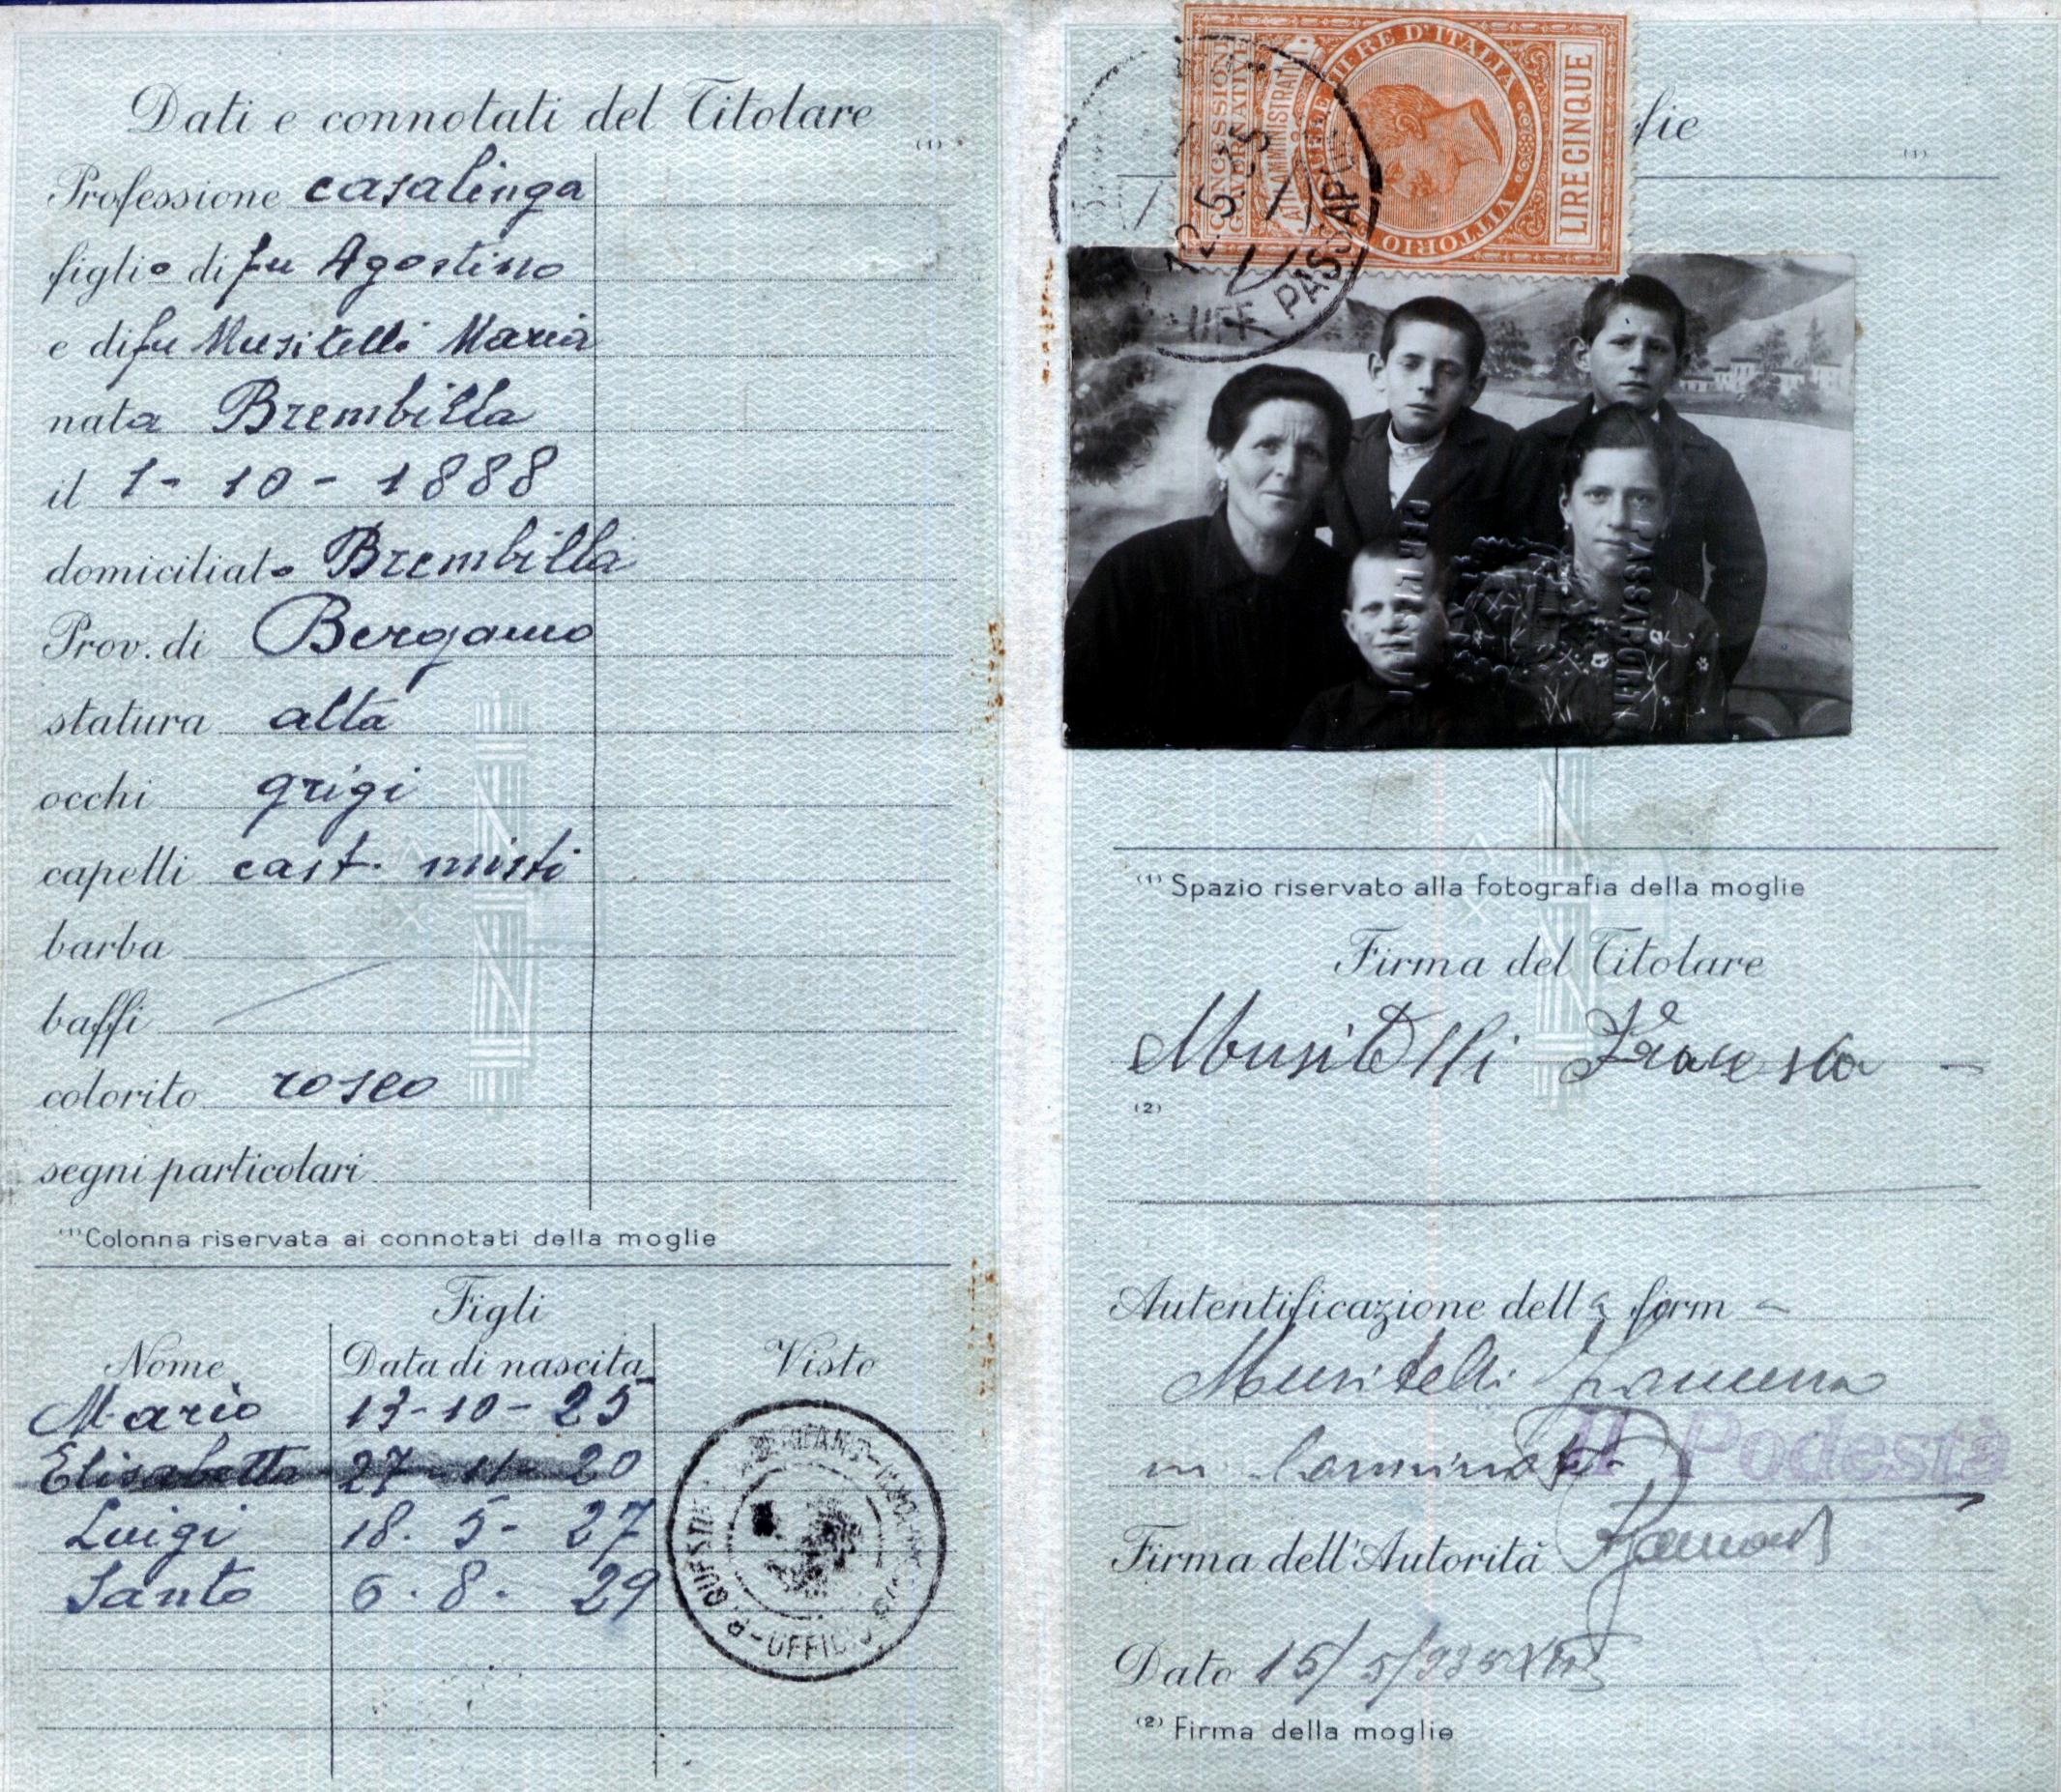 Dati e connotati del Titolare
(1)
Professione casalinga
figlio di fu Agostino
e di fu Musitelli Maria
nata Brembilla
il 1-10-1888
domiciliato Brembilla
Prov. di Bergamo
statura alta
occhi grigi
capelli cast. misti
barba
baffi
colorito roseo
segni particolari
(1) Colonna riservata ai connotati della moglie
Figli
Nome Data di nascita Visto
Mario 13-10-25
Elisabetta 27-11-20
Luigi 18.5-27
Santo 6.8.29
UFFICIO
fie
(1)
CONCESSIONI GOVERNATIVE
ATTI AMMINISTRATIVI
VITTORIO D'ITALIA
LIRE CINQUE
12.5.35
UFF PASSAPORTI
(1) Spazio riservato alla fotografia della moglie
Firma del Titolare
Musitelli Francesca
(2)
Autentificazione della firm
Musitelli Francesca
in
Il Podestà
Firma dell'Autorità
Dato 15/5/935 XIII
(2) Firma della moglie